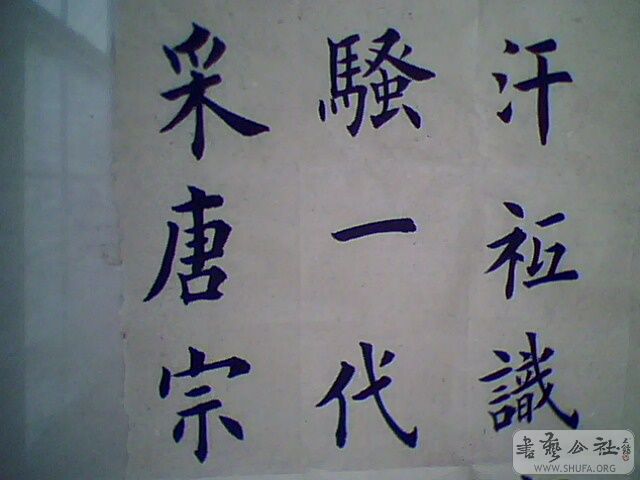 汗祗識
騷一代
采唐宗
書藝公社
WWW.SHUFA.ORG